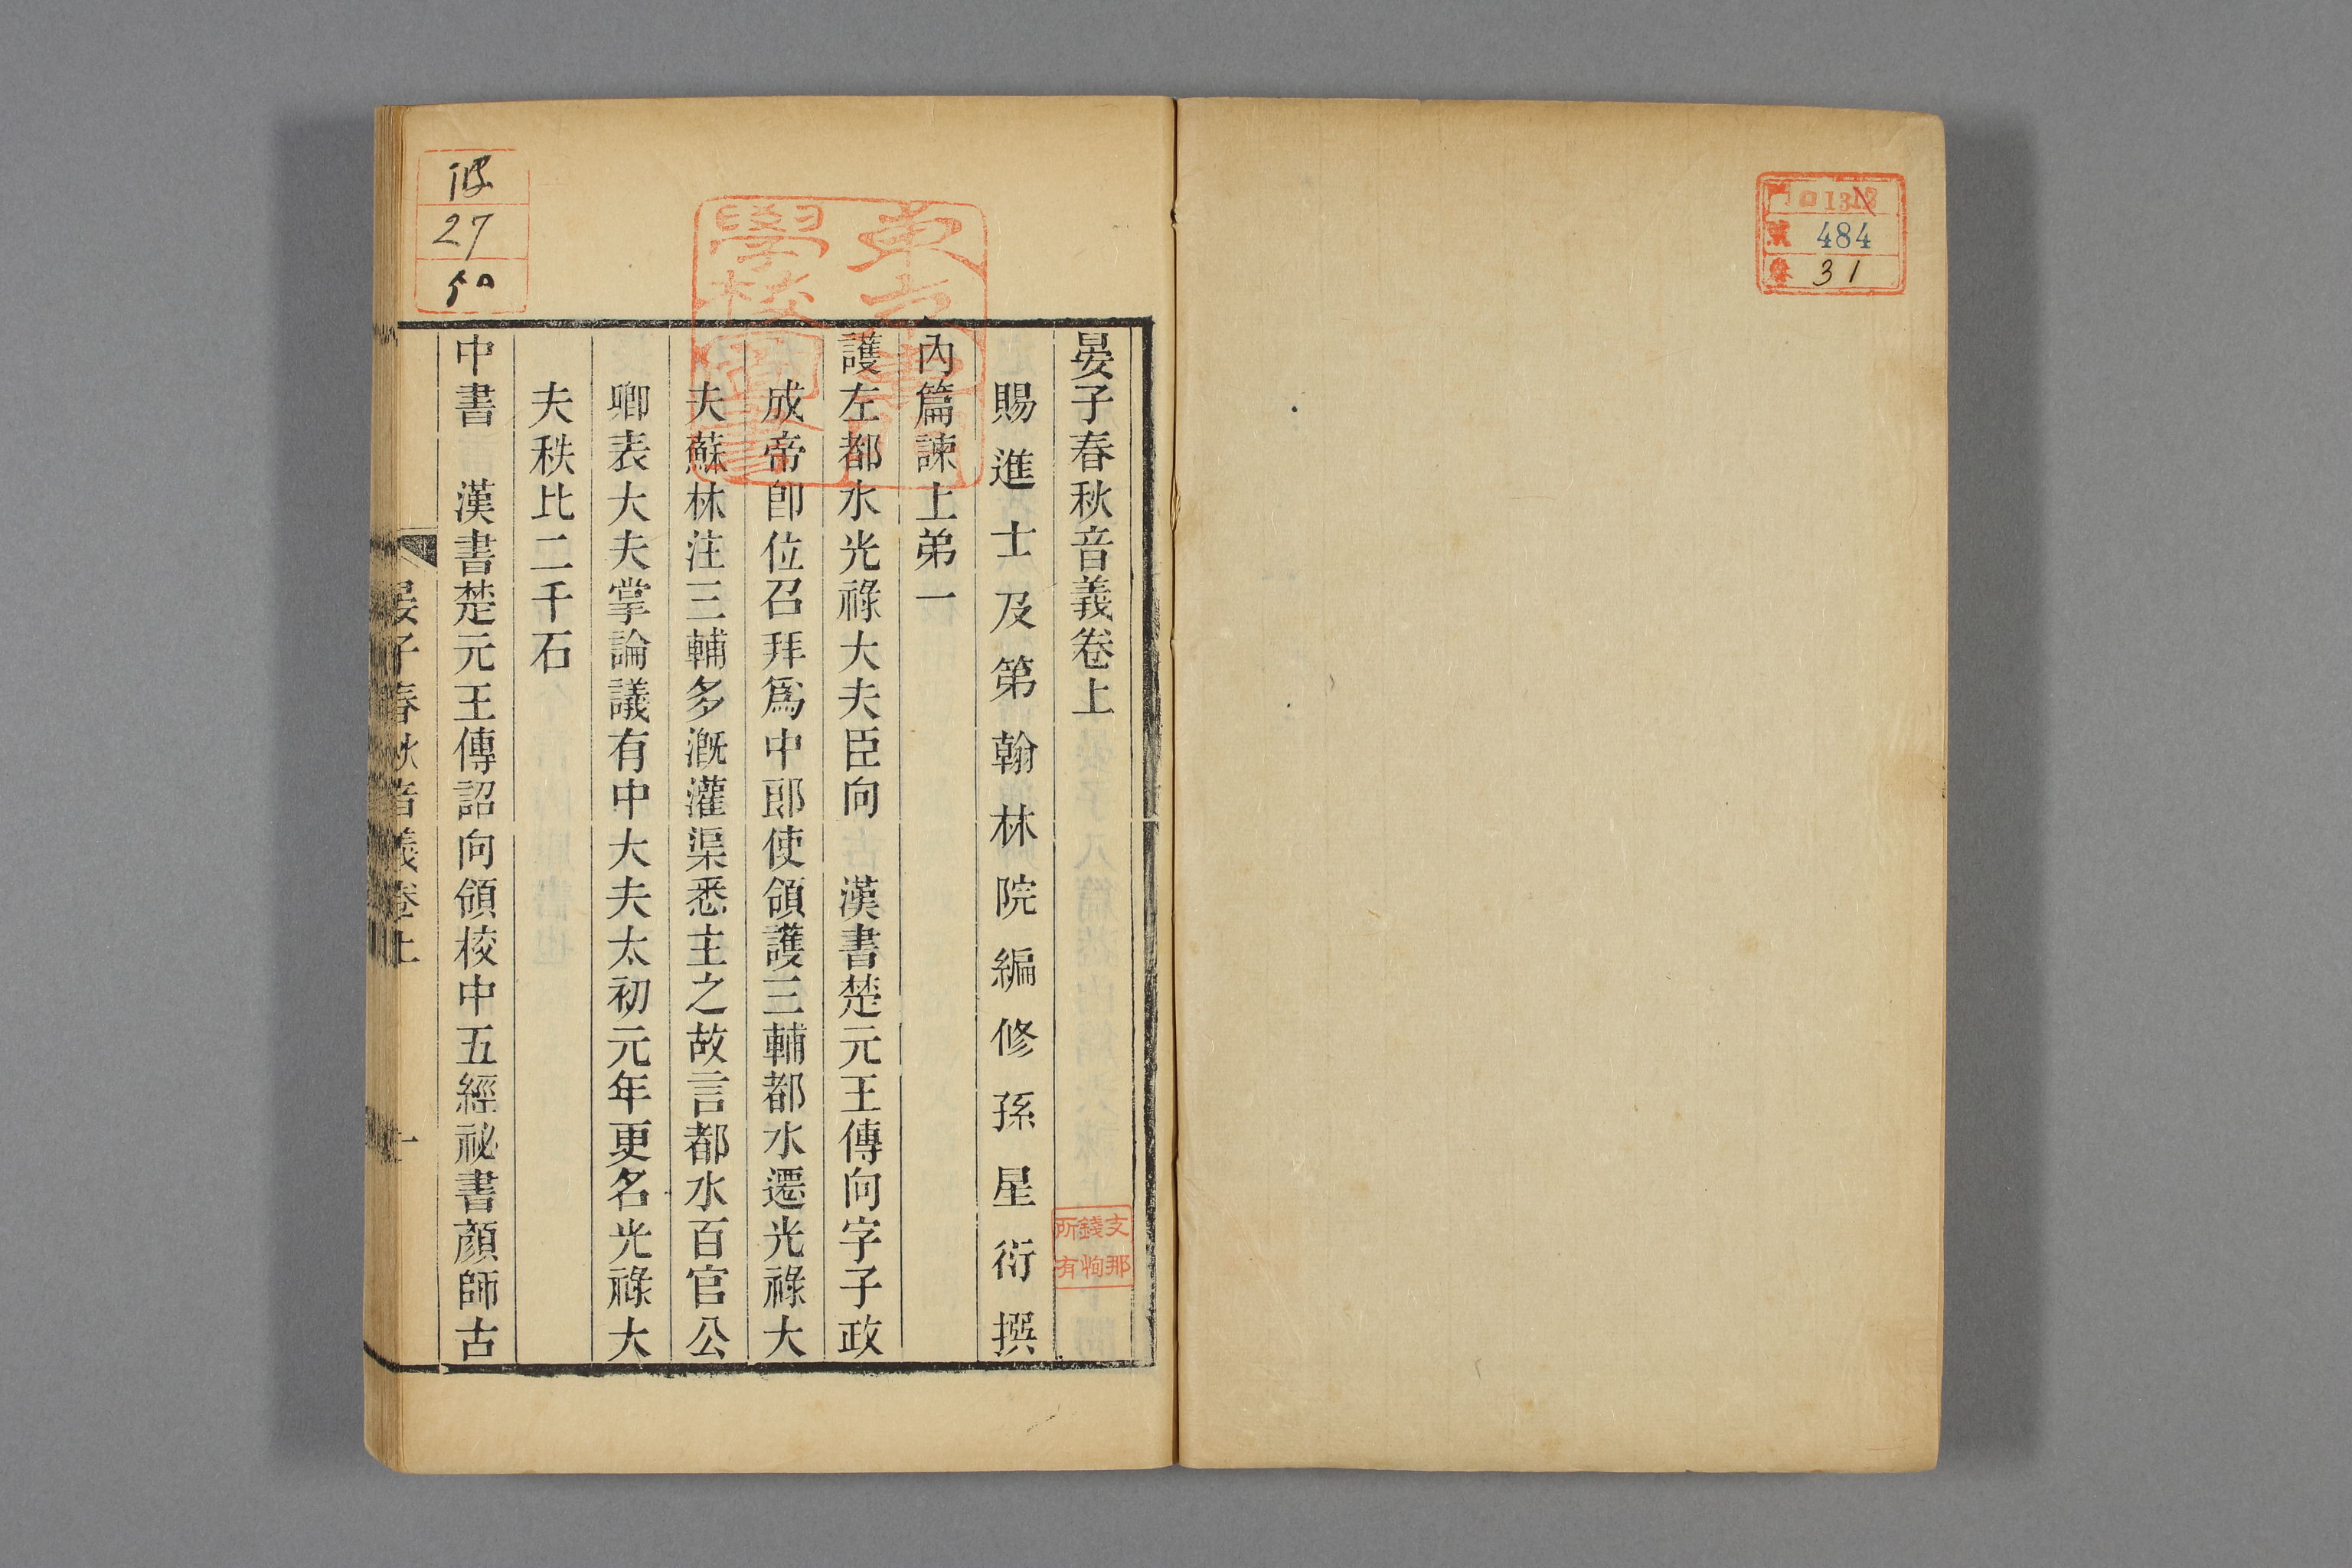 晏子春秋音義卷上
賜進士及第翰林院編修孫星衍撰
內篇諫上弟一
護左都水光祿大夫臣向　漢書楚元王傳向字子政
成帝卽位召拜爲中郎使領護三輔都水遷光祿大
夫蘇林注三輔多漑灌渠悉主之故言都水百官公
卿表大夫掌論議有中大夫太初元年更名光祿大
夫秩比二千石
中書　漢書楚元王傳詔向領校中五經祕書顏師古
晏子春秋音義卷上
一
27
50
484
31
支那
錢恂
所有